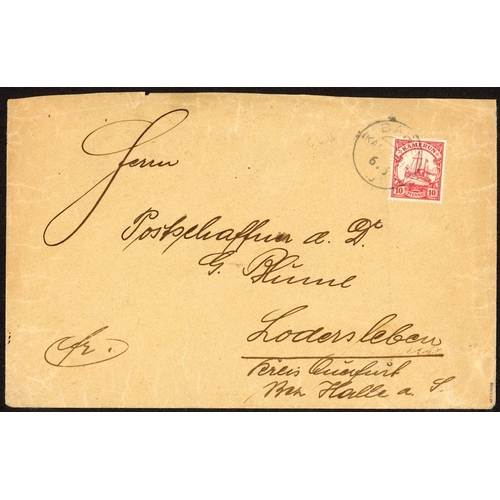 KAMERUN
10 PFENNIG 10
6.
Herrn
Postschaffner a. D.
G. Blume
Lodersleben
fr.
Kreis Querfurt
Bez. Halle a. S.